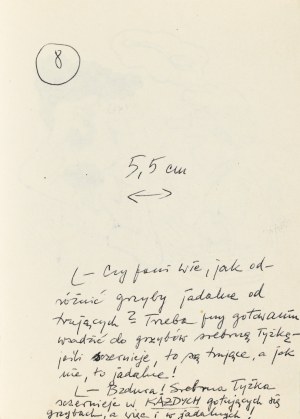 8
5,5 cm
(— Czy pani wie, jak od-
różnić grzyby jadalne od
trujących? Trzeba przy gotowaniu
wsadzić do grzybów srebrną łyżkę
jeśli sczernieje, to są trujące, a jak
nie, to jadalne!
(— Bzdura! Srebrna łyżka
sczernieje w KAŻDYCH gotujących się
grzybach, a więc i w jadalnych!